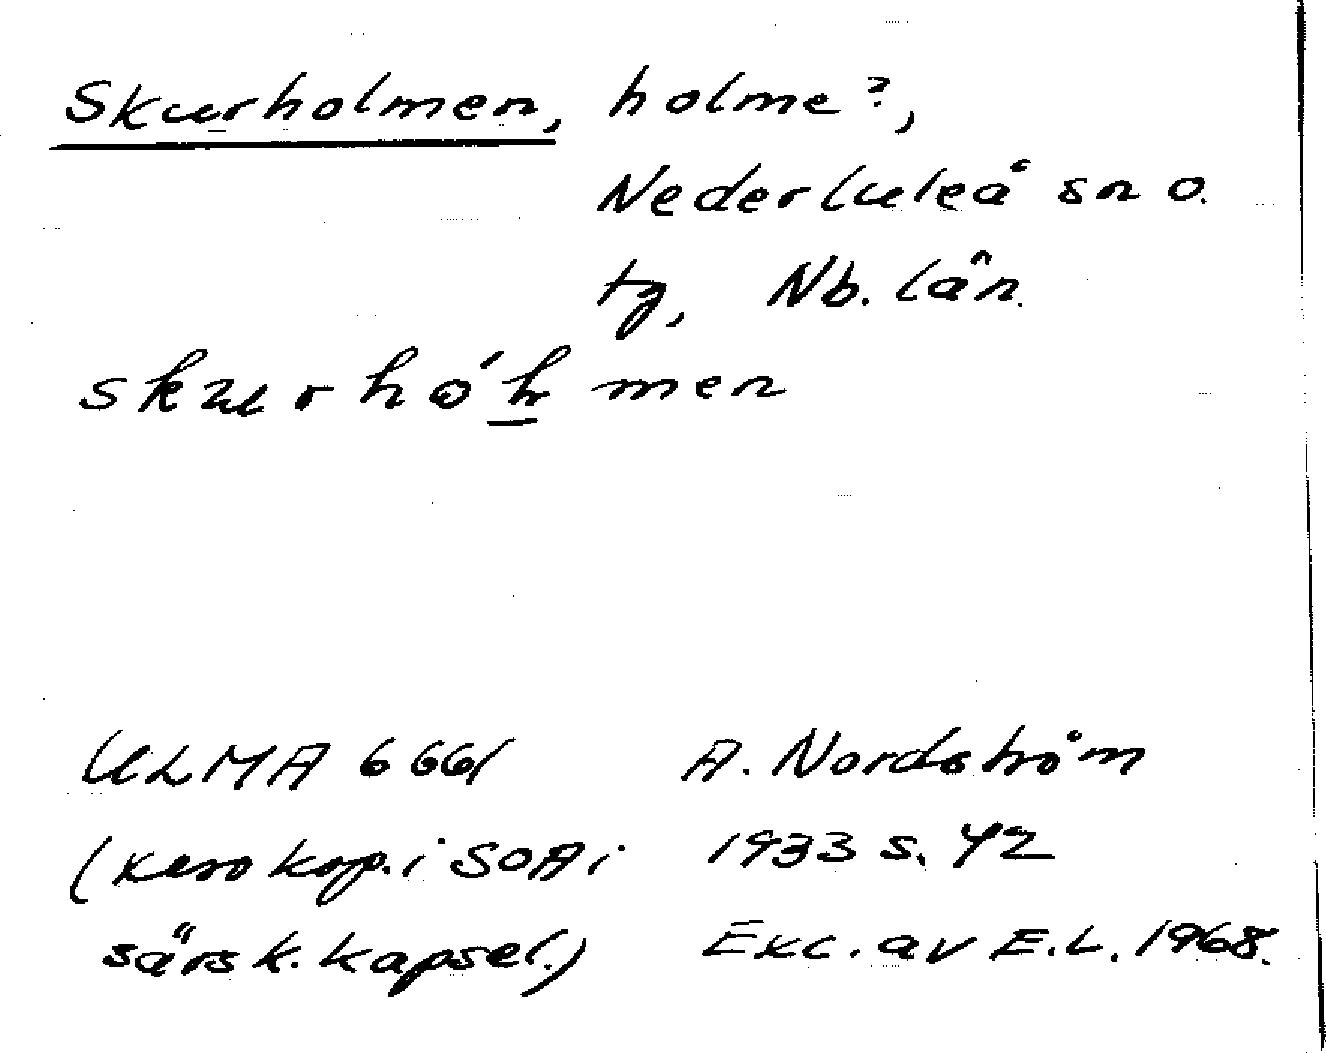 Skurholmen, holme?,
Nederluleå sn o.
tg, Nb. län.
skurhóhmen
ULMA 6661 A. Nordström
(xerokop. i SOA i 1933 s. 42
särsk. kapsel.) Exc. av E.L. 1968.